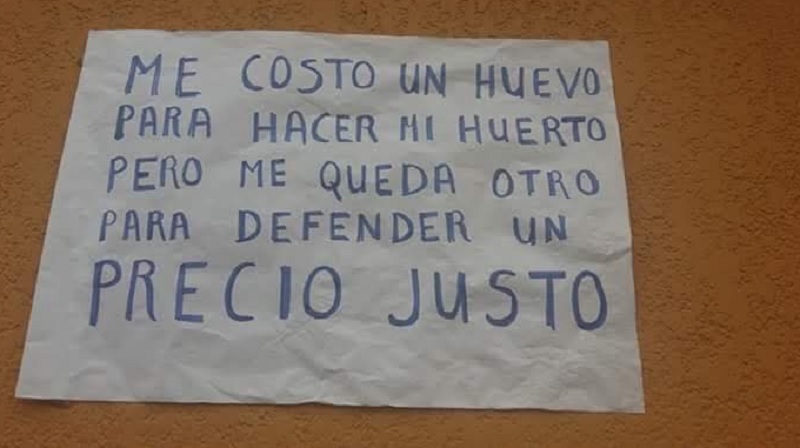 ME COSTO UN HUEVO
PARA HACER MI HUERTO
PERO ME QUEDA OTRO
PARA DEFENDER UN
PRECIO JUSTO